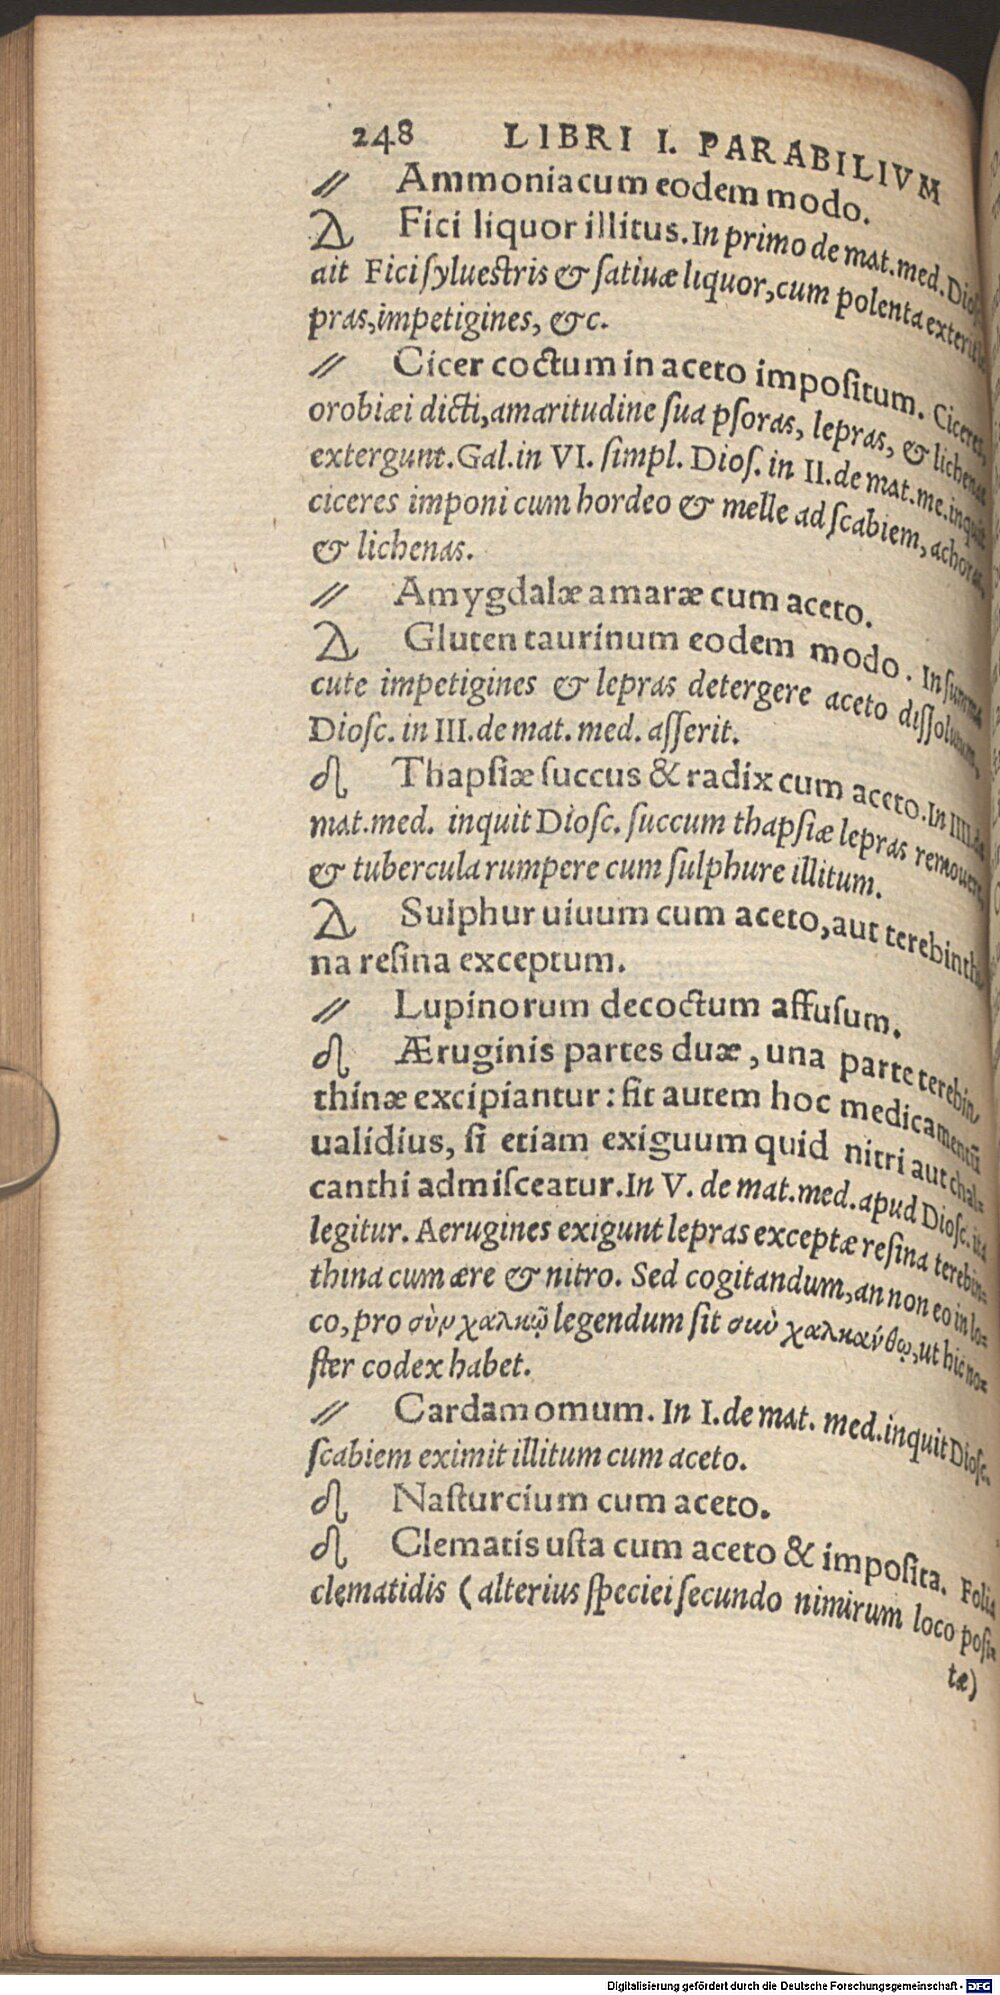 248 LIBRI I. PARABILIVM
⫽ Ammoniacum eodem modo.
Fici liquor illitus. In primo de mat. med. Dios.
ait Fici syluestris & satiuæ liquor, cum polenta exterit
pras, impetigines, &c.
⫽ Cicer coctum in aceto impositum. Ciceres,
orobiæi dicti, amaritudine sua psoras, lepras, & lichenas
extergunt. Gal. in VI. simpl. Dios. in II. de mat. me. inquit
ciceres imponi cum hordeo & melle ad scabiem, achoras,
& lichenas.
⫽ Amygdalæ amaræ cum aceto.
Gluten taurinum eodem modo. In summa
cute impetigines & lepras detergere aceto dissolutum,
Diosc. in III. de mat. med. asserit.
♌ Thapsiæ succus & radix cum aceto. In IIII. de
mat. med. inquit Diosc. succum thapsiæ lepras remouere,
& tubercula rumpere cum sulphure illitum.
Sulphur uiuum cum aceto, aut terebinthi
na resina exceptum.
⫽ Lupinorum decoctum affusum.
♌ Æruginis partes duæ, una parte terebin,
thinæ excipiantur: fit autem hoc medicamentũ
ualidius, si etiam exiguum quid nitri aut chal=
canthi admisceatur. In V. de mat. med. apud Diosc. ita
legitur. Aerugines exigunt lepras exceptæ resina terebin=
thina cum ære & nitro. Sed cogitandum, an non eo in lo=
co, pro σὺν χαλκῷ legendum sit σκὺ χαλκαύθῳ, ut hic no=
ster codex habet.
⫽ Cardamomum. In I. de mat. med. inquit Diosc.
scabiem eximit illitum cum aceto.
♌ Nasturcium cum aceto.
♌ Clematis usta cum aceto & imposita. Folia
clematidis (alterius speciei secundo nimirum loco posi=
tæ)
Digitalisierung gefördert durch die Deutsche Forschungsgemeinschaft - DFG